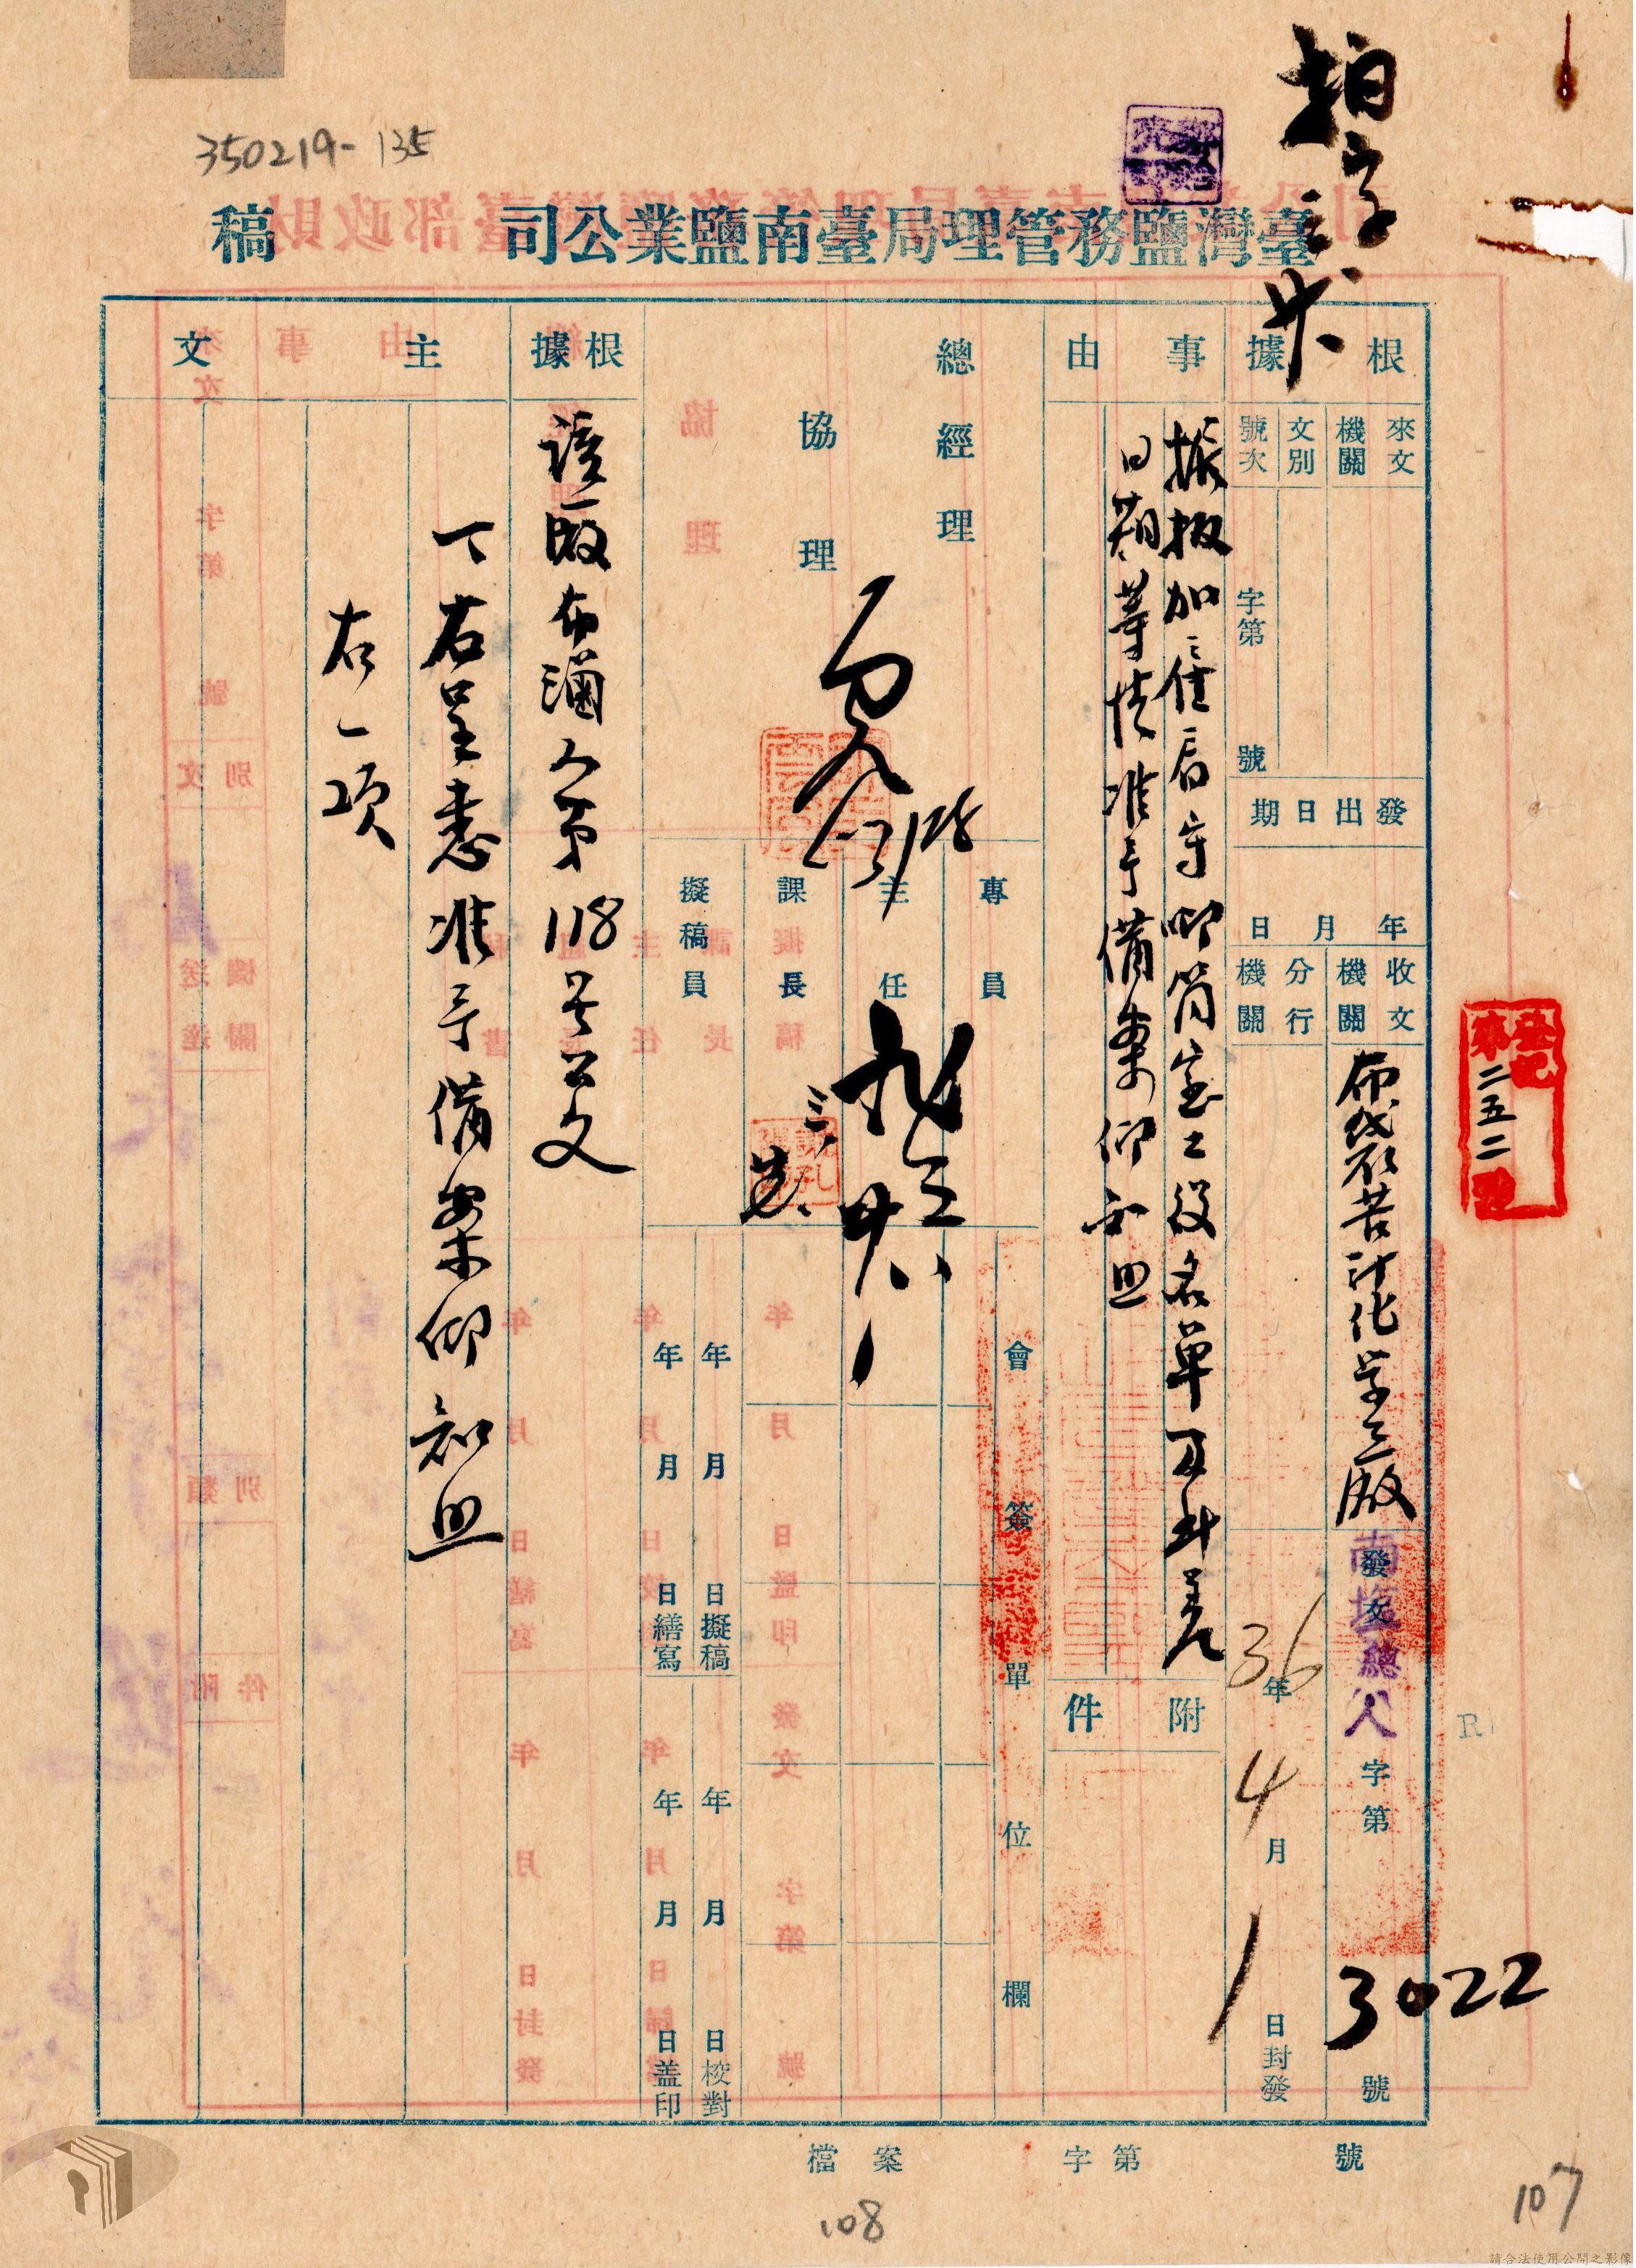 350219-135
臺灣鹽務管理局臺南鹽業公司 稿
根據
來文機關
文別
號次
字第 號
發出日期
年 月 日
收文機關
布袋苦汁化學工廠
分行機關
發文
南塩總人
字第 3022 號
36年4月1日封發
事由
據報加 信局守衛 室工役名單及升差
日期等情准予備案仰知照
附件
總經理
協理
專員
主任
課長
擬稿員
會簽單位欄
年 月 日擬稿
年 月 日繕寫
年 月 日校對
年 月 日蓋印
根據
該廠布滷人第118號公文
主文
一、右呈悉准予備案仰知照
右一項
登記
二五二
檔案 字第 號
108
107
請合法使用公開之影像